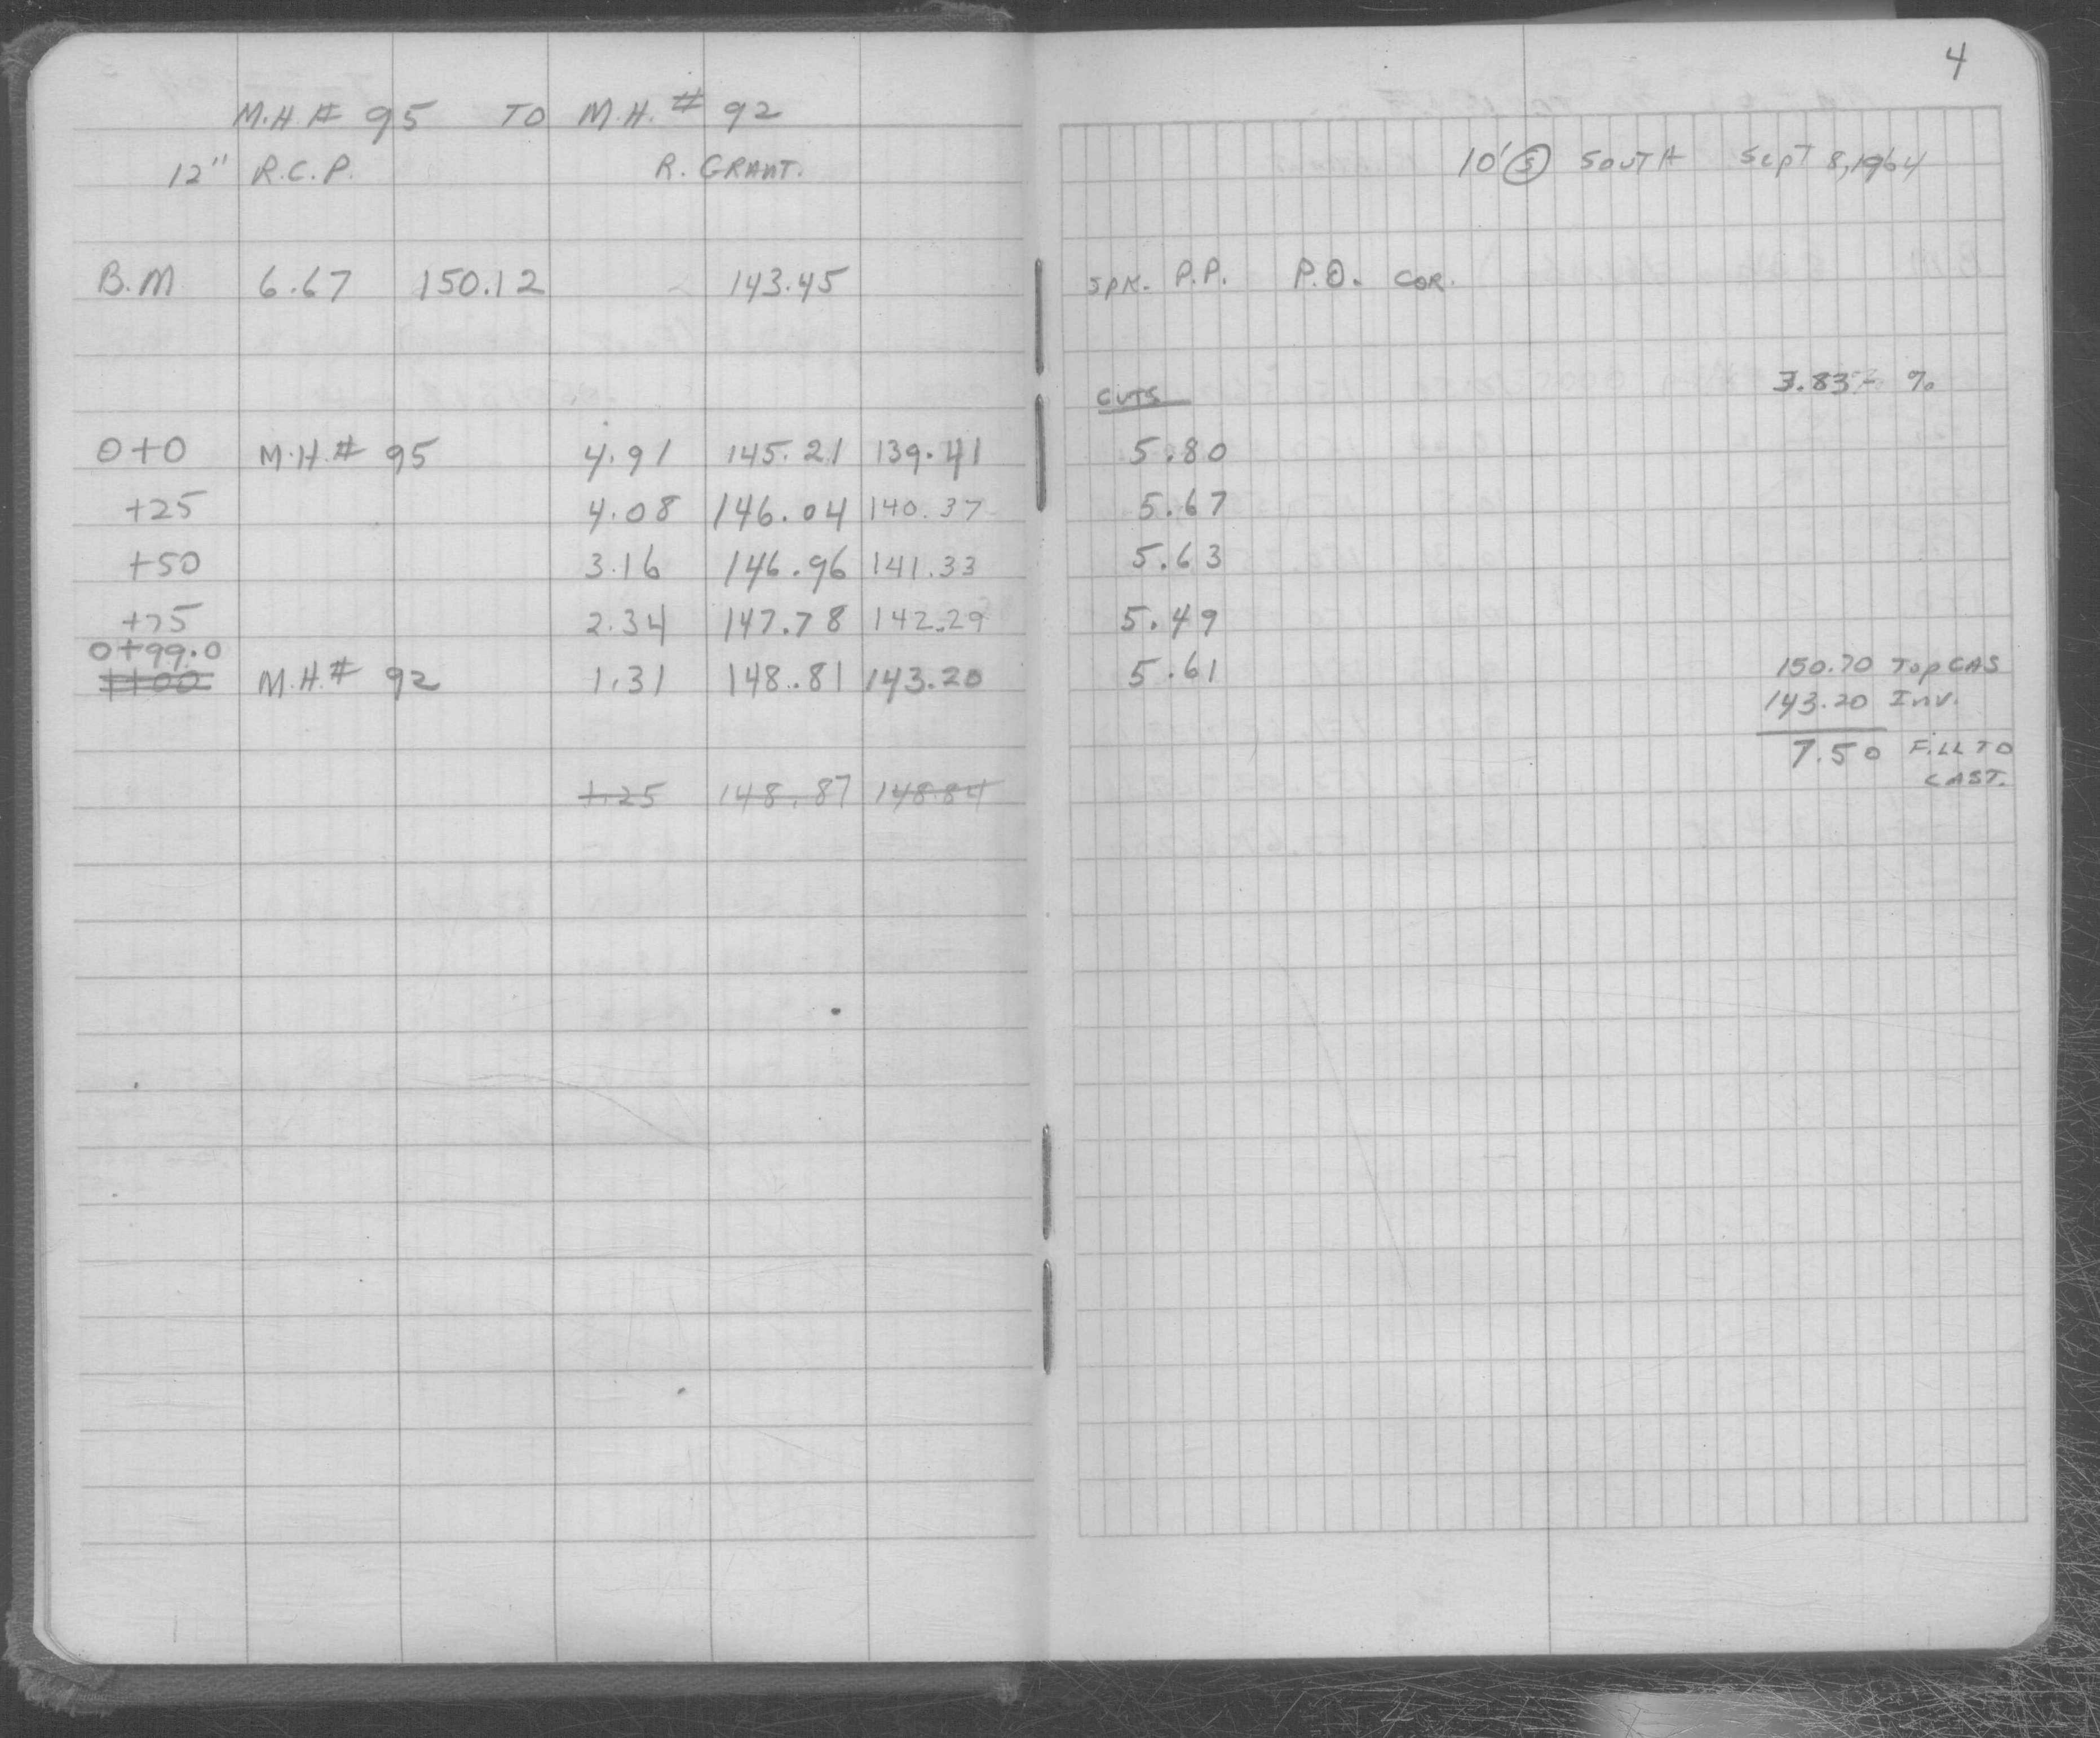 M.H # 95 TO M.H. # 92
12" R.C.P. R. GRANT.
B.M 6.67 150.12 143.45
0+0 M.H.# 95 4.91 145.21 139.41
+25 4.08 146.04 140.37
+50 3.16 146.96 141.33
+75 2.34 147.78 142.29
0+99.0
1+00 M.H.# 92 1.31 148.81 143.20
1.25 148.87 148.84
4
10' S SOUTH Sept 8, 1964
SPK. P.P. P.O. COR.
3.83 %
CUTS
5.80
5.67
5.63
5.49
5.61 150.70 Top CAS
143.20 Inv.
7.50 FILL TO
CAST.